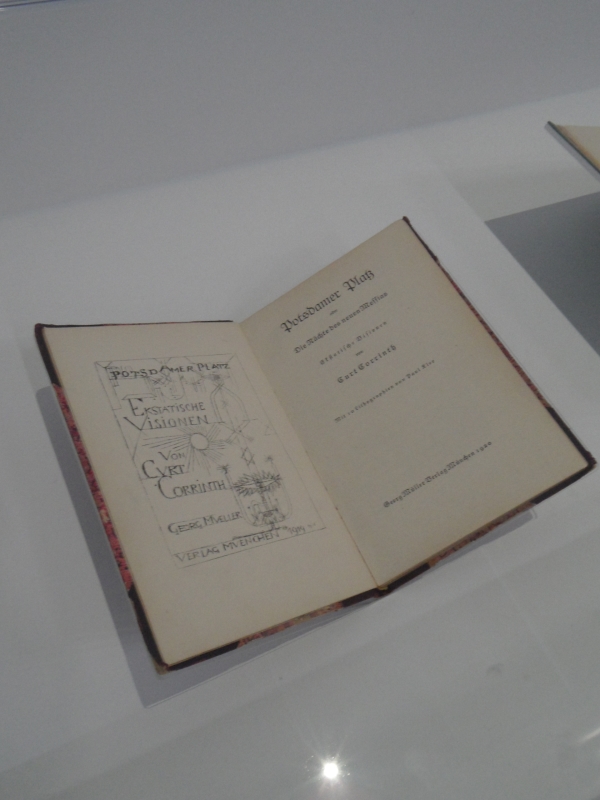 POTSDAMER PLATZ
EKSTATISCHE
VISIONEN
VON
CVRT
CORRINTH
GEORG MUELLER
VERLAG MUENCHEN
Potsdamer Platz
oder
Die Nächte des neuen Messias
Ekstatische Visionen
von
Curt Corrinth
Mit 10 Lithographien von Paul Klee
Georg Müller Verlag München 1920